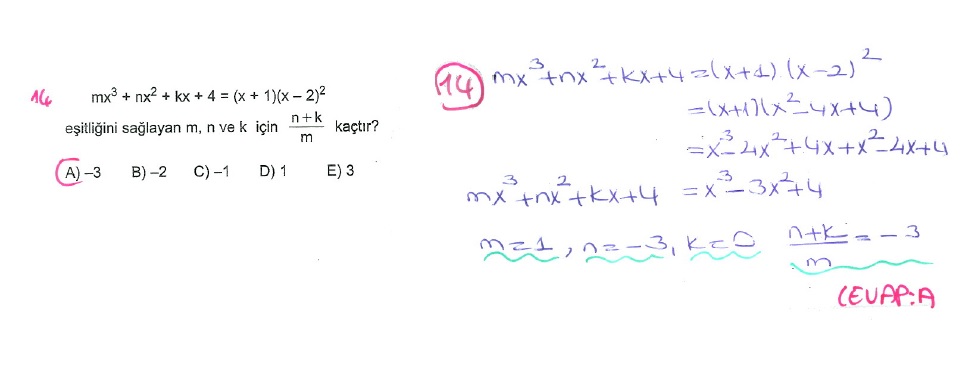 14 mx³ + nx² + kx + 4 = (x + 1)(x – 2)²
eşitliğini sağlayan m, n ve k için n+k/m kaçtır?
A) –3 B) –2 C) –1 D) 1 E) 3
14 mx³+nx²+kx+4=(x+1).(x-2)²
=(x+1)(x²-4x+4)
=x³-4x²+4x+x²-4x+4
mx³+nx²+kx+4 =x³-3x²+4
m=1, n=-3, k=0 n+k/m=-3
CEVAP:A